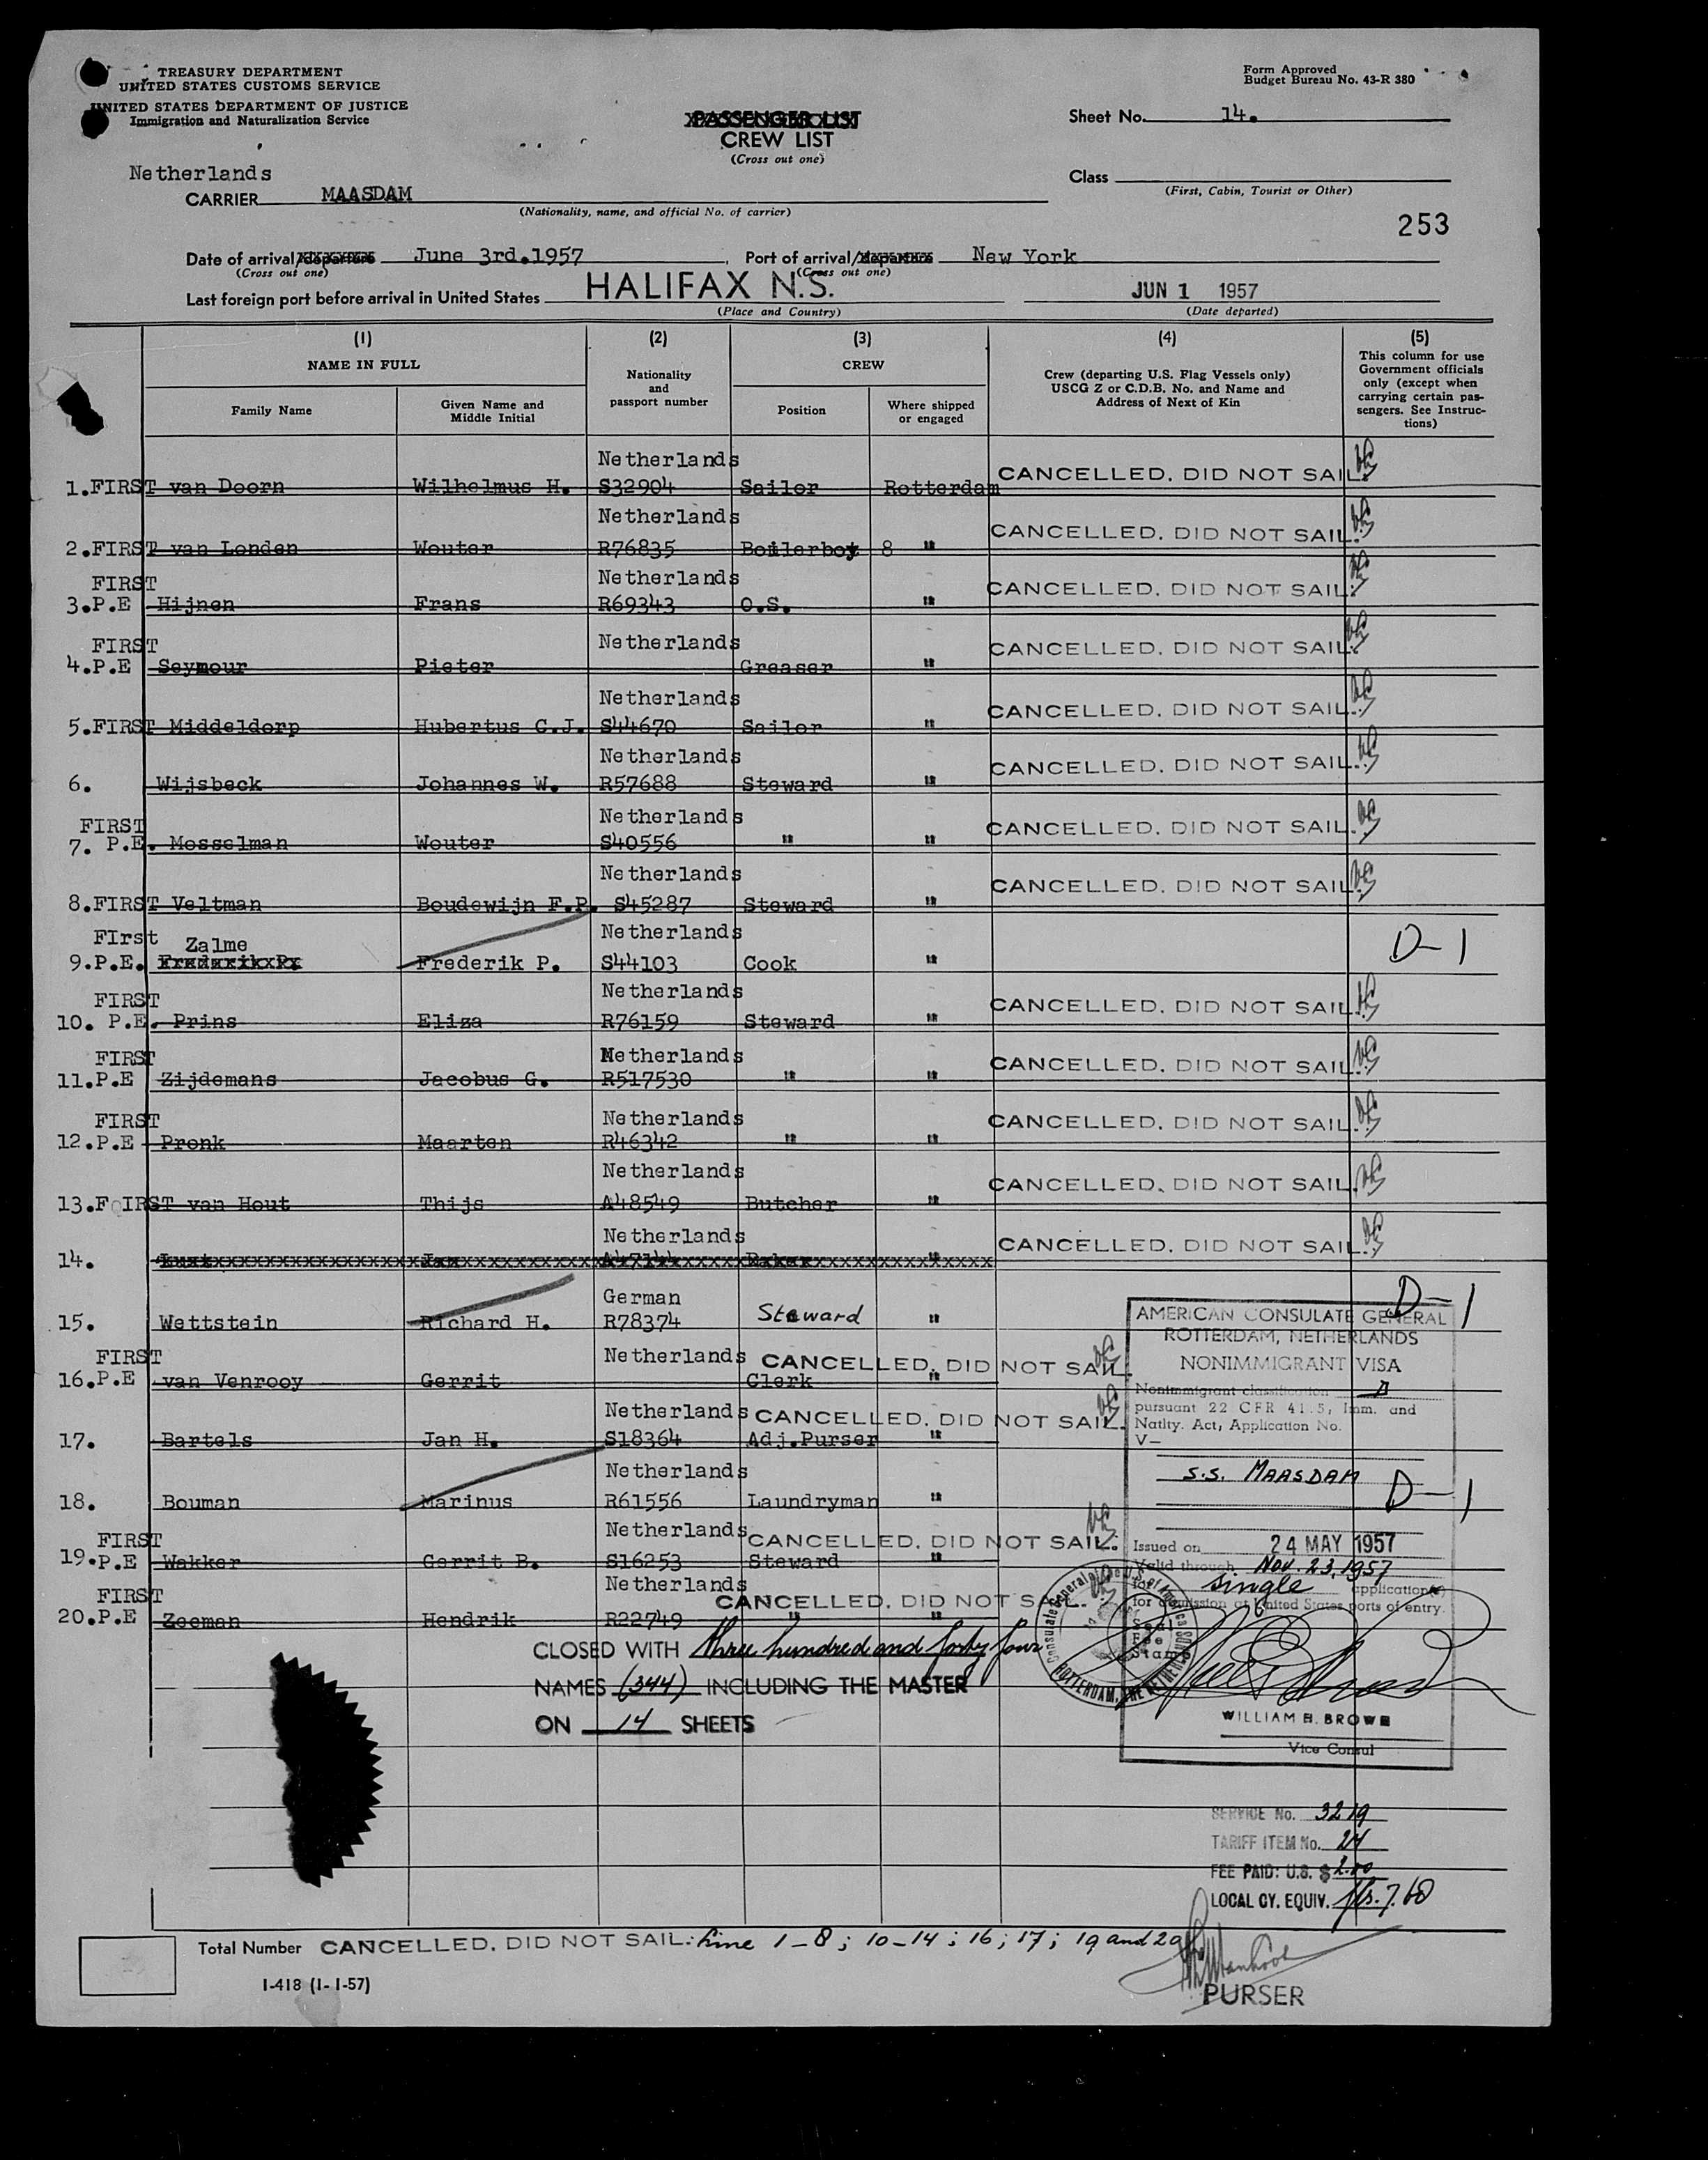 TREASURY DEPARTMENT
UNITED STATES CUSTOMS SERVICE
UNITED STATES DEPARTMENT OF JUSTICE
Immigration and Naturalization Service
Form Approved
Budget Bureau No. 43-R 380
PASSENGER LIST
CREW LIST
(Cross out one)
Sheet No. 14.
Netherlands
CARRIER MAASDAM
(Nationality, name, and official No. of carrier)
Class
(First, Cabin, Tourist or Other)
253
Date of arrival/departure June 3rd.1957, Port of arrival/departure New York
(Cross out one) (Cross out one)
Last foreign port before arrival in United States HALIFAX N.S. JUN 1 1957
(Place and Country) (Date departed)
(1) (2) (3) (4) (5)
NAME IN FULL
Family Name
Given Name and Middle Initial
Nationality and passport number
CREW
Position
Where shipped or engaged
Crew (departing U.S. Flag Vessels only)
USCG Z or C.D.B. No. and Name and
Address of Next of Kin
This column for use
Government officials
only (except when
carrying certain pas-
sengers. See Instruc-
tions)
Netherlands CANCELLED. DID NOT SAIL.
1.FIRST van Doorn Wilhelmus H. S32904 Sailor Rotterdam
Netherlands CANCELLED. DID NOT SAIL.
2.FIRST van Londen Wouter R76835 Boilerboy 8 "
FIRST Netherlands CANCELLED. DID NOT SAIL.
3.P.E Hijnen Frans R69343 O.S. "
FIRST Netherlands CANCELLED. DID NOT SAIL.
4.P.E Seymour Pieter Greaser "
Netherlands CANCELLED. DID NOT SAIL.
5.FIRST Middeldorp Hubertus C.J. S44670 Sailor "
Netherlands CANCELLED. DID NOT SAIL.
6. Wijsbeck Johannes W. R57688 Steward "
FIRST Netherlands CANCELLED. DID NOT SAIL.
7. P.E. Mosselman Wouter S40556 " "
Netherlands CANCELLED. DID NOT SAIL.
8.FIRST Veltman Boudewijn F.P. S45287 Steward "
FIrst Zalme Netherlands D-1
9.P.E. Frederik P. S44103 Cook "
FIRST Netherlands CANCELLED. DID NOT SAIL.
10. P.E. Prins Eliza R76159 Steward "
FIRST Netherlands CANCELLED. DID NOT SAIL.
11.P.E Zijdemans Jacobus G. R517530 " "
FIRST Netherlands CANCELLED. DID NOT SAIL.
12.P.E Pronk Maarten R46342 " "
Netherlands CANCELLED. DID NOT SAIL.
13.F IRST van Hout Thijs A48549 Butcher "
Netherlands CANCELLED. DID NOT SAIL.
14. Jan A47144 Baker "
German D-1
15. Wettstein Richard H. R78374 Steward "
FIRST Netherlands CANCELLED. DID NOT SAIL.
16.P.E van Venrooy Gerrit Clerk "
Netherlands CANCELLED. DID NOT SAIL.
17. Bartels Jan H. S18364 Adj.Purser "
Netherlands D-1
18. Bouman Marinus R61556 Laundryman "
FIRST Netherlands CANCELLED. DID NOT SAIL.
19.P.E Wakker Gerrit B. S16253 Steward "
FIRST Netherlands CANCELLED. DID NOT SAIL.
20.P.E Zeeman Hendrik R22749 " "
AMERICAN CONSULATE GENERAL
ROTTERDAM, NETHERLANDS
NONIMMIGRANT VISA
Nonimmigrant classification D
pursuant 22 CFR 41.5, Imm. and
Natlty. Act, Application No.
V—
S.S. MAASDAM
Issued on 24 MAY 1957
Valid through Nov. 23, 1957
for single application(s)
for admission at United States ports of entry.
Seal
Fee
Stamp
ROTTERDAM, THE NETHERLANDS
WILLIAM H. BROWN
Vice Consul
CLOSED WITH three hundred and forty four
NAMES (344) INCLUDING THE MASTER
ON 14 SHEETS
SERVICE No. 3219
TARIFF ITEM No. 24
FEE PAID: U.S. $ 2.00
LOCAL CY. EQUIV. fls. 7.60
Total Number CANCELLED. DID NOT SAIL: Line 1-8; 10-14; 16; 17; 19 and 20
I-418 (1-1-57)
PURSER